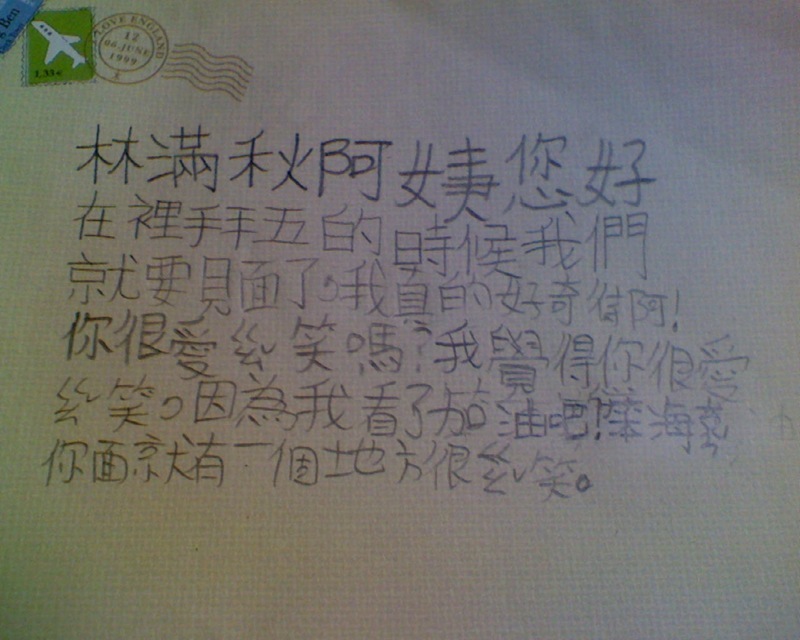 Ben
LOVE ENGLAND
12
06-JUNE
1999
1,35€
林滿秋阿姨您好
在裡拜五白的時候我們
就要見面了。我真的好奇待阿!
你很愛幺笑嗎?我覺得你很愛
幺笑。因為我看了加油吧!葉海
你面就有一個地方很幺笑。